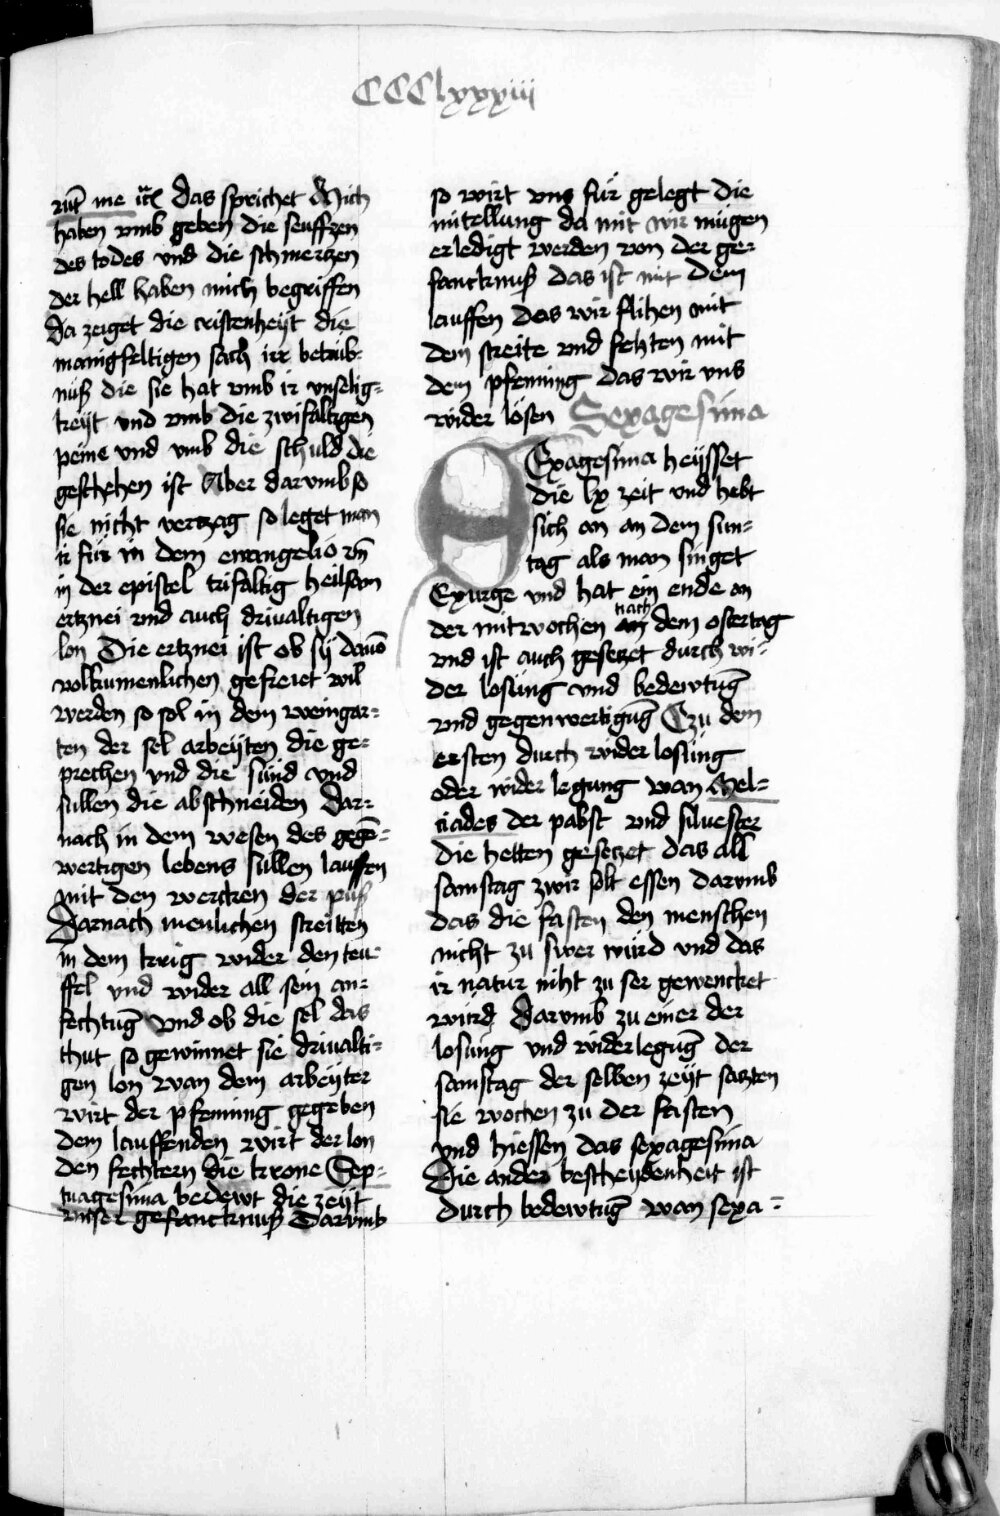 CCClxxxiii
rūt me ꝛc̄ das sprichet Mich
haben vmb geben die seuffzen
des todes vnd die schmertzen
der hell haben mich begriffen
Da zeiget die cristenheyt die
manigfeltigen sach irr betrüb-
nüß die sie hat vmb ir vnselig-
keyt vnd vmb die zwifaltigen
peine vnd vmb die schuld die
geschehen ist Aber darvmb so
sie nicht vertzag so leget man
ir für in dem ewangelio vn̄
in der epistel trifaltig heilsam
ertznei vnd auch driualtigen
lon Die ertznei ist ob sy dauō
volkumenlichen gefreiet wil
werden so sol in dem weingar-
ten der sel arbeyten die ge-
prechen vnd die sünd vnd
sullen die abschneiden Dar-
nach in dem wesen des gegē-
wertigen lebens sullen lauffen
mit den wercken der puß
Darnach menlichen streitten
in dem krig wider den teu-
ffel vnd wider all sein an-
fechtūg Vnd ob die sel das
thut so gewinnet sie driualti-
gen lon wan dem arbeyter
wirt der pfenning gegeben
dem lauffenden wirt der lon
den fechtern die krone Sep-
tuagesima bedewt die zeyt
vnser gefancknuß Darvmb
so wirt vns für gelegt die
mitellung da mit wir mügen
erledigt werden von der ge-
fancknuß das ist mit dem
lauffen das wir flihen mit
dem streite vnd fehten mit
dem pfenning das wir vns
wider lösen Sexagesima
Sexagesima heysset
die lx zeit vnd hebt
sich an an dem sun-
tag als man singet
Exurge vnd hat ein ende an
der mitwochen nach dem ostertag
vnd ist auch gesetzet durch wi-
der losung vnd bedewtūg
vnd gegenwertigūg Czu dem
ersten durch wider losung
oder wider legung wan Mel-
ciades der pabst vnd siluester
die hetten gesetzet das all
samstag zwir solt essen darvmb
das die fasten den menschen
nicht zu swer würd vnd das
ir natur niht zu ser gewencket
würd Darvmb zu einer der
losung vnd widerlegūg der
samstag der selben zeyt satzten
sie wochen zu der fasten
vnd hiessen das sexagesima
Die ander bescheydenheit ist
durch bedewtūg wan sexa-